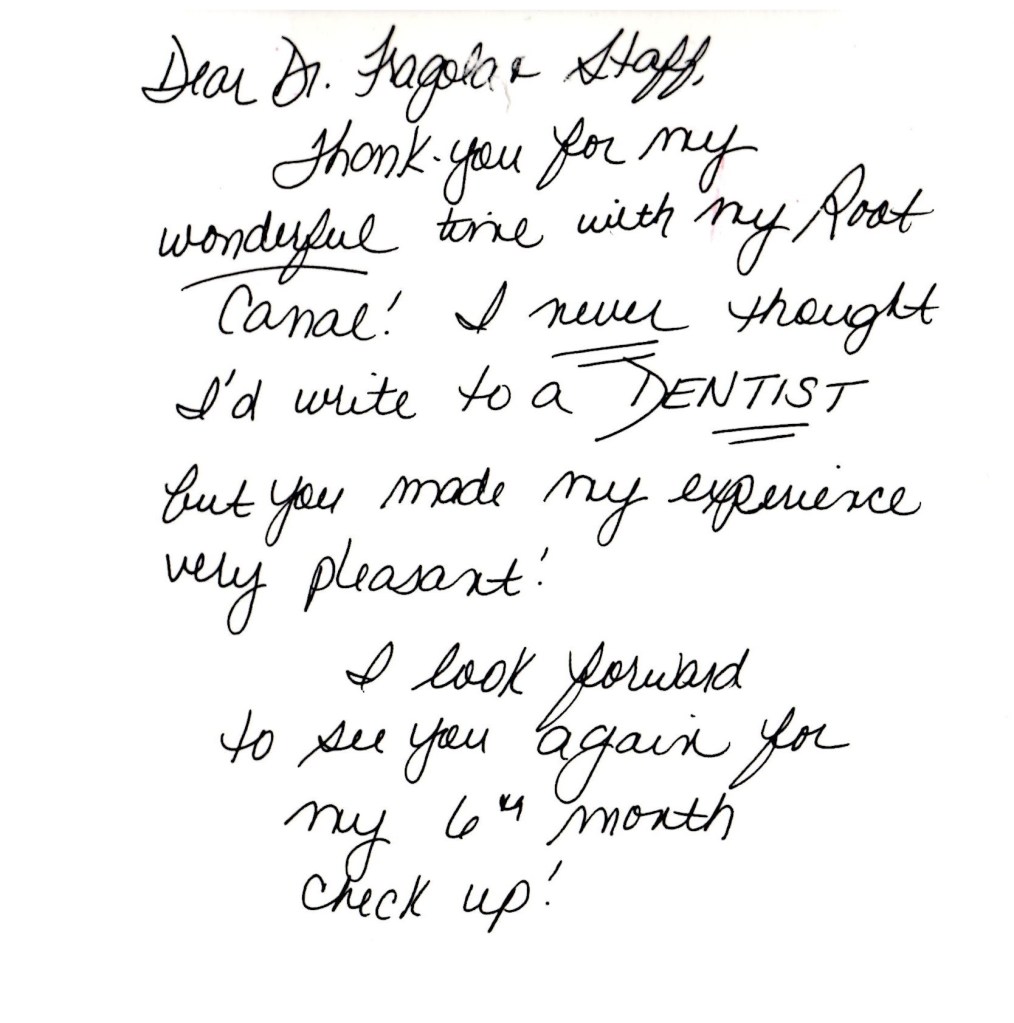 Dear Dr. Fragola & Staff,
Thank-you for my
wonderful time with my Root
Canal! I never thought
I'd write to a DENTIST
but you made my experience
very pleasant!
I look forward
to see you again for
my 6th month
check up!